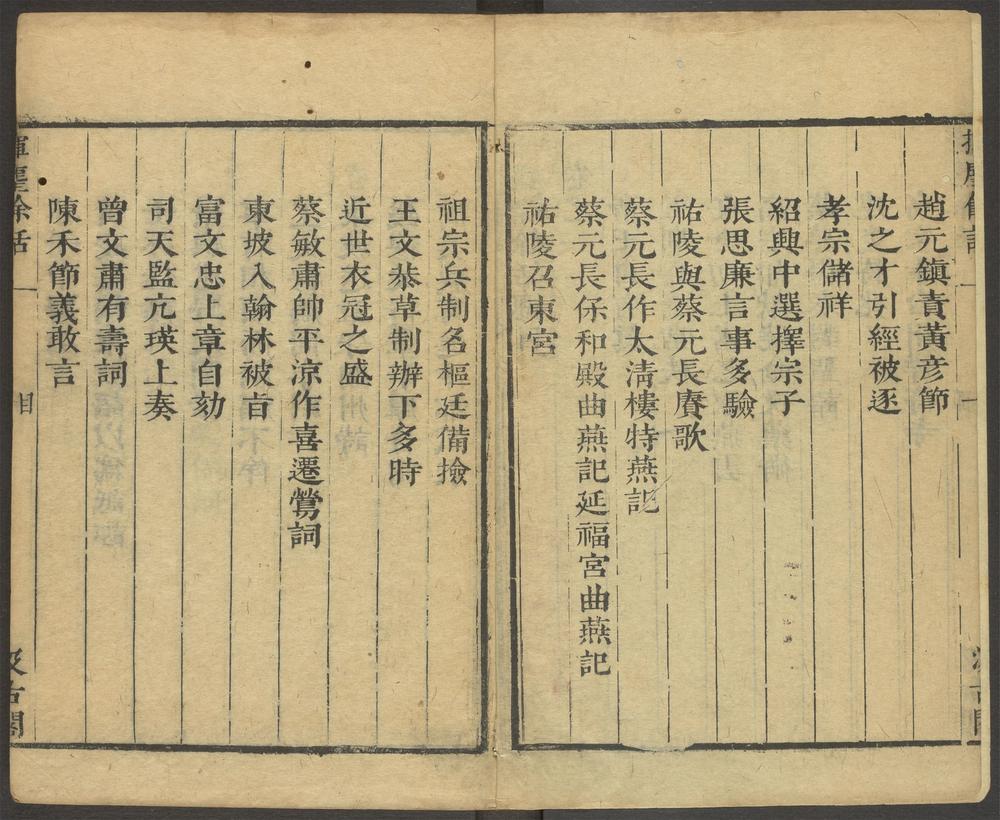 趙元鎭責黃彦節
沈之才引經被逐
孝宗儲祥
紹興中選擇宗子
張思廉言事多驗
祐陵與蔡元長賡歌
蔡元長作太淸樓特燕記
蔡元長保和殿曲燕記延福宮曲燕記
祐陵召東宮
祖宗兵制名樞廷備撿
王文㳟草制辦下多時
近世衣冠之盛
蔡敏肅帥平涼作喜遷鶯詞
東坡入翰林被㫖
富文忠上章自劾
司天監亢瑛上奏
曾文肅有壽詞
陳禾節義敢言
揮麈餘話 一 目 汲古閣